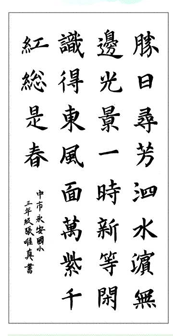 勝日尋芳泗水濵無
邊光景一時新等閑
識得東風面萬紫千
紅総是春
中市永安國小
三年級張唯真書